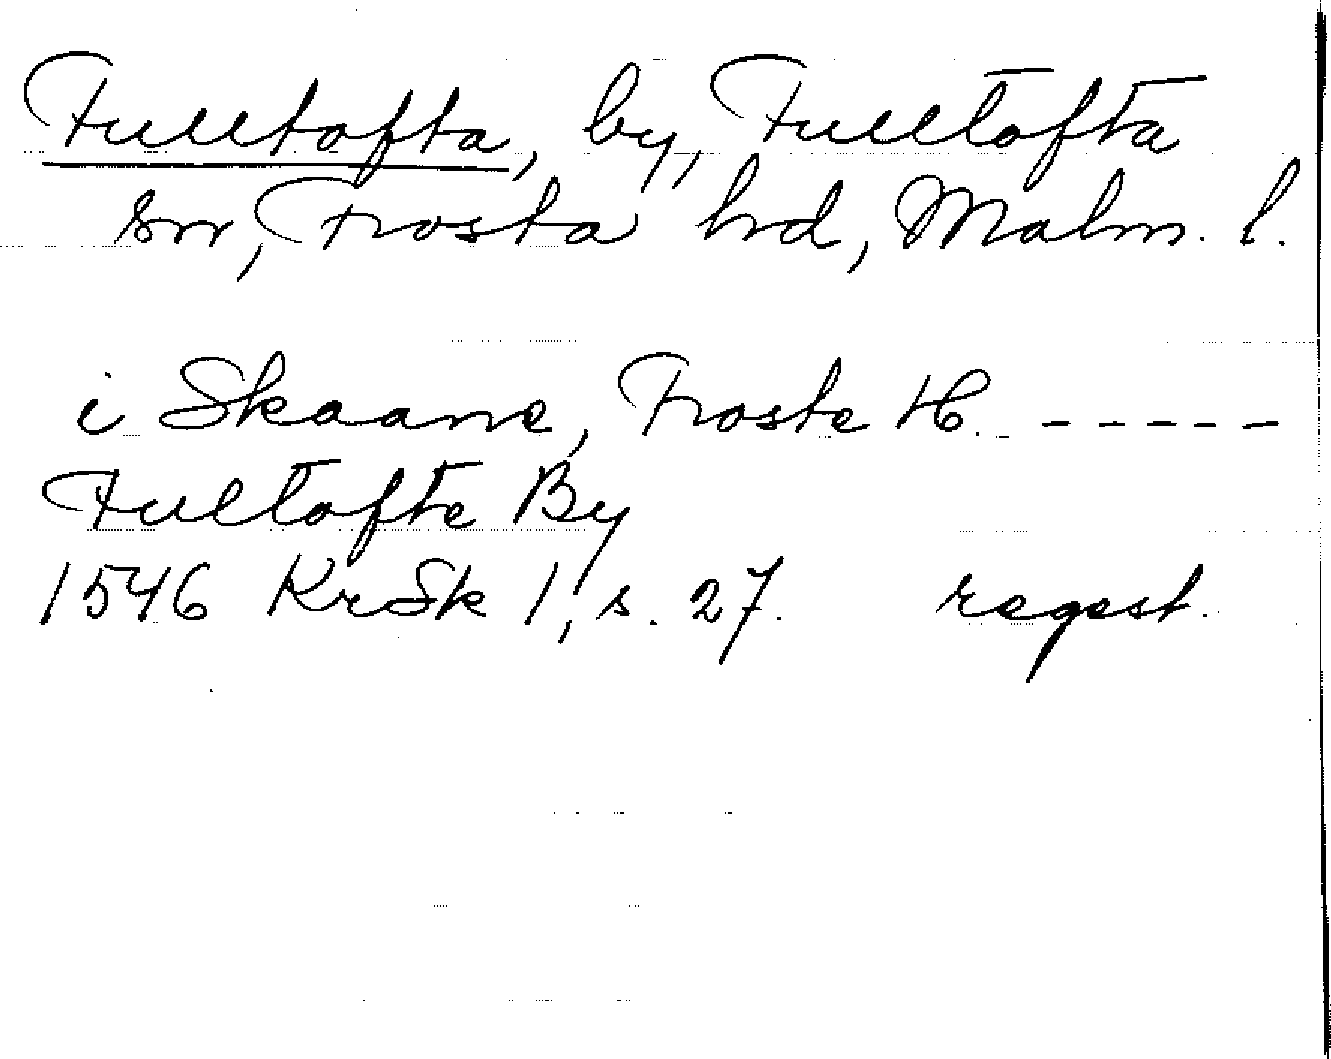 Fulltofta, by, Fulltofta
sn, Frosta hrd, Malm. l.
i Skaane, Froste H. -----
Fultofte By
1546 KrSk 1, s. 27. regest.